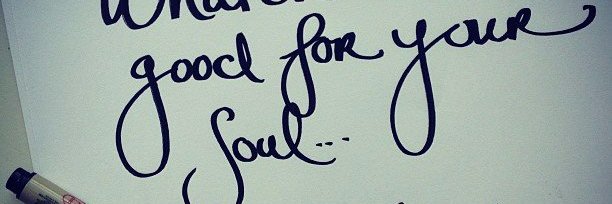 good for your
soul...